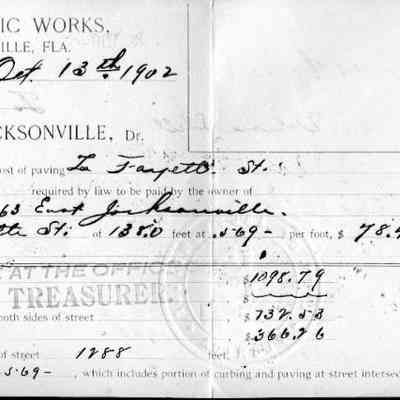 IC WORKS,
VILLE, FLA.
Oct 13th 1902
CKSONVILLE, Dr.
ost of paving La Fayette St.
required by law to be paid by the owner of
63 East Jacksonville.
tte St. of 138.0 feet at .569- per foot, $ 78.4
AT THE OFFIC
TREASURER.
$1098.79
$
oth sides of street $732.53
$366.26
of street 1288 feet,
.569-, which includes portion of curbing and paving at street intersec